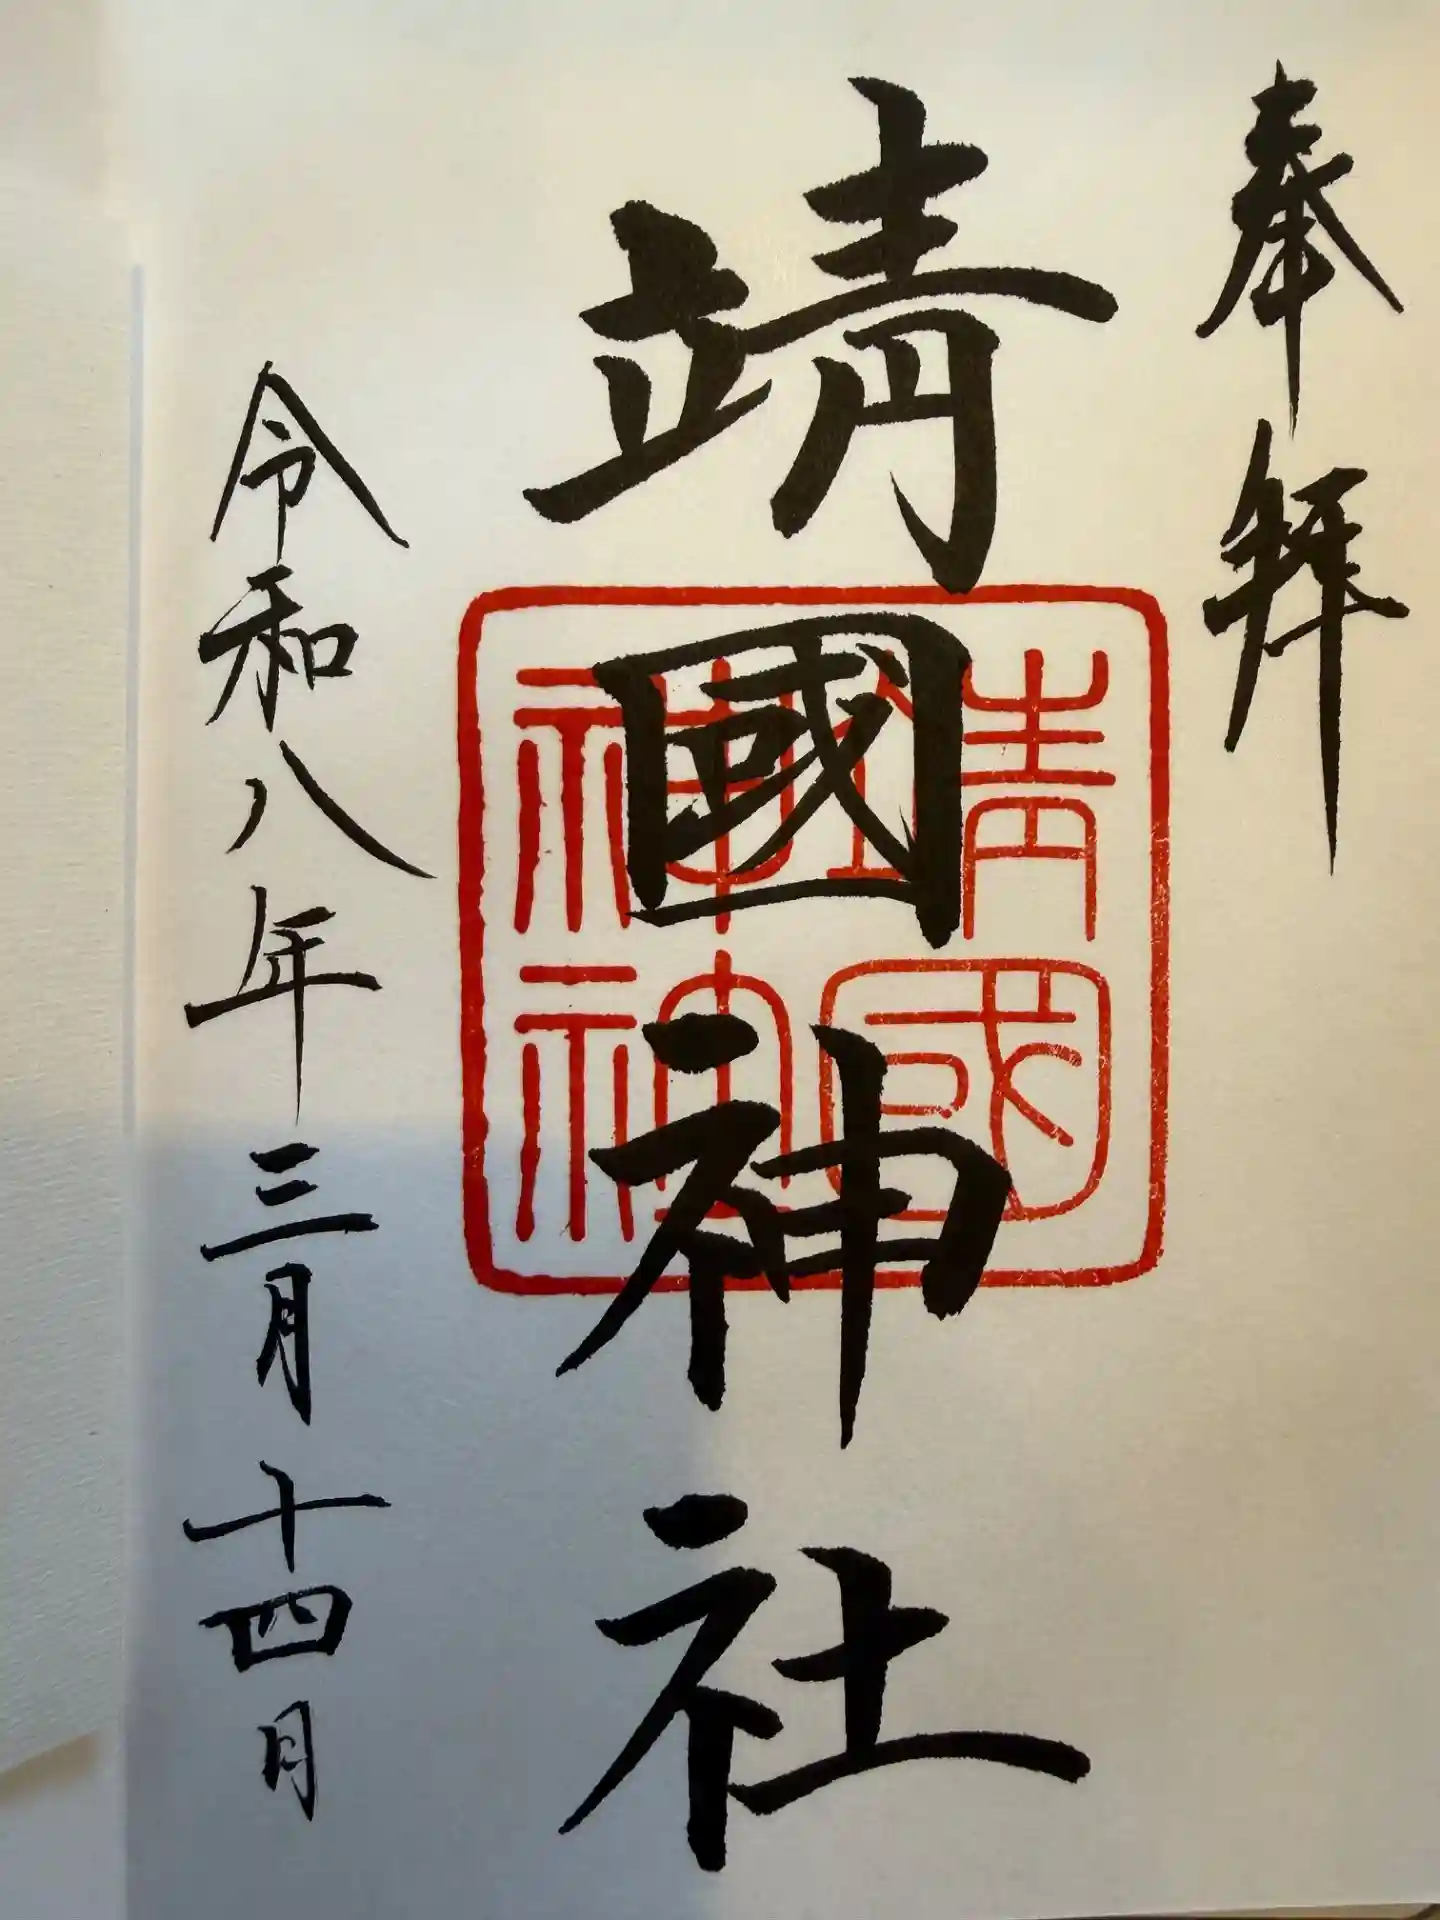 奉拝
靖國神社
靖國神社
令和八年三月十四月